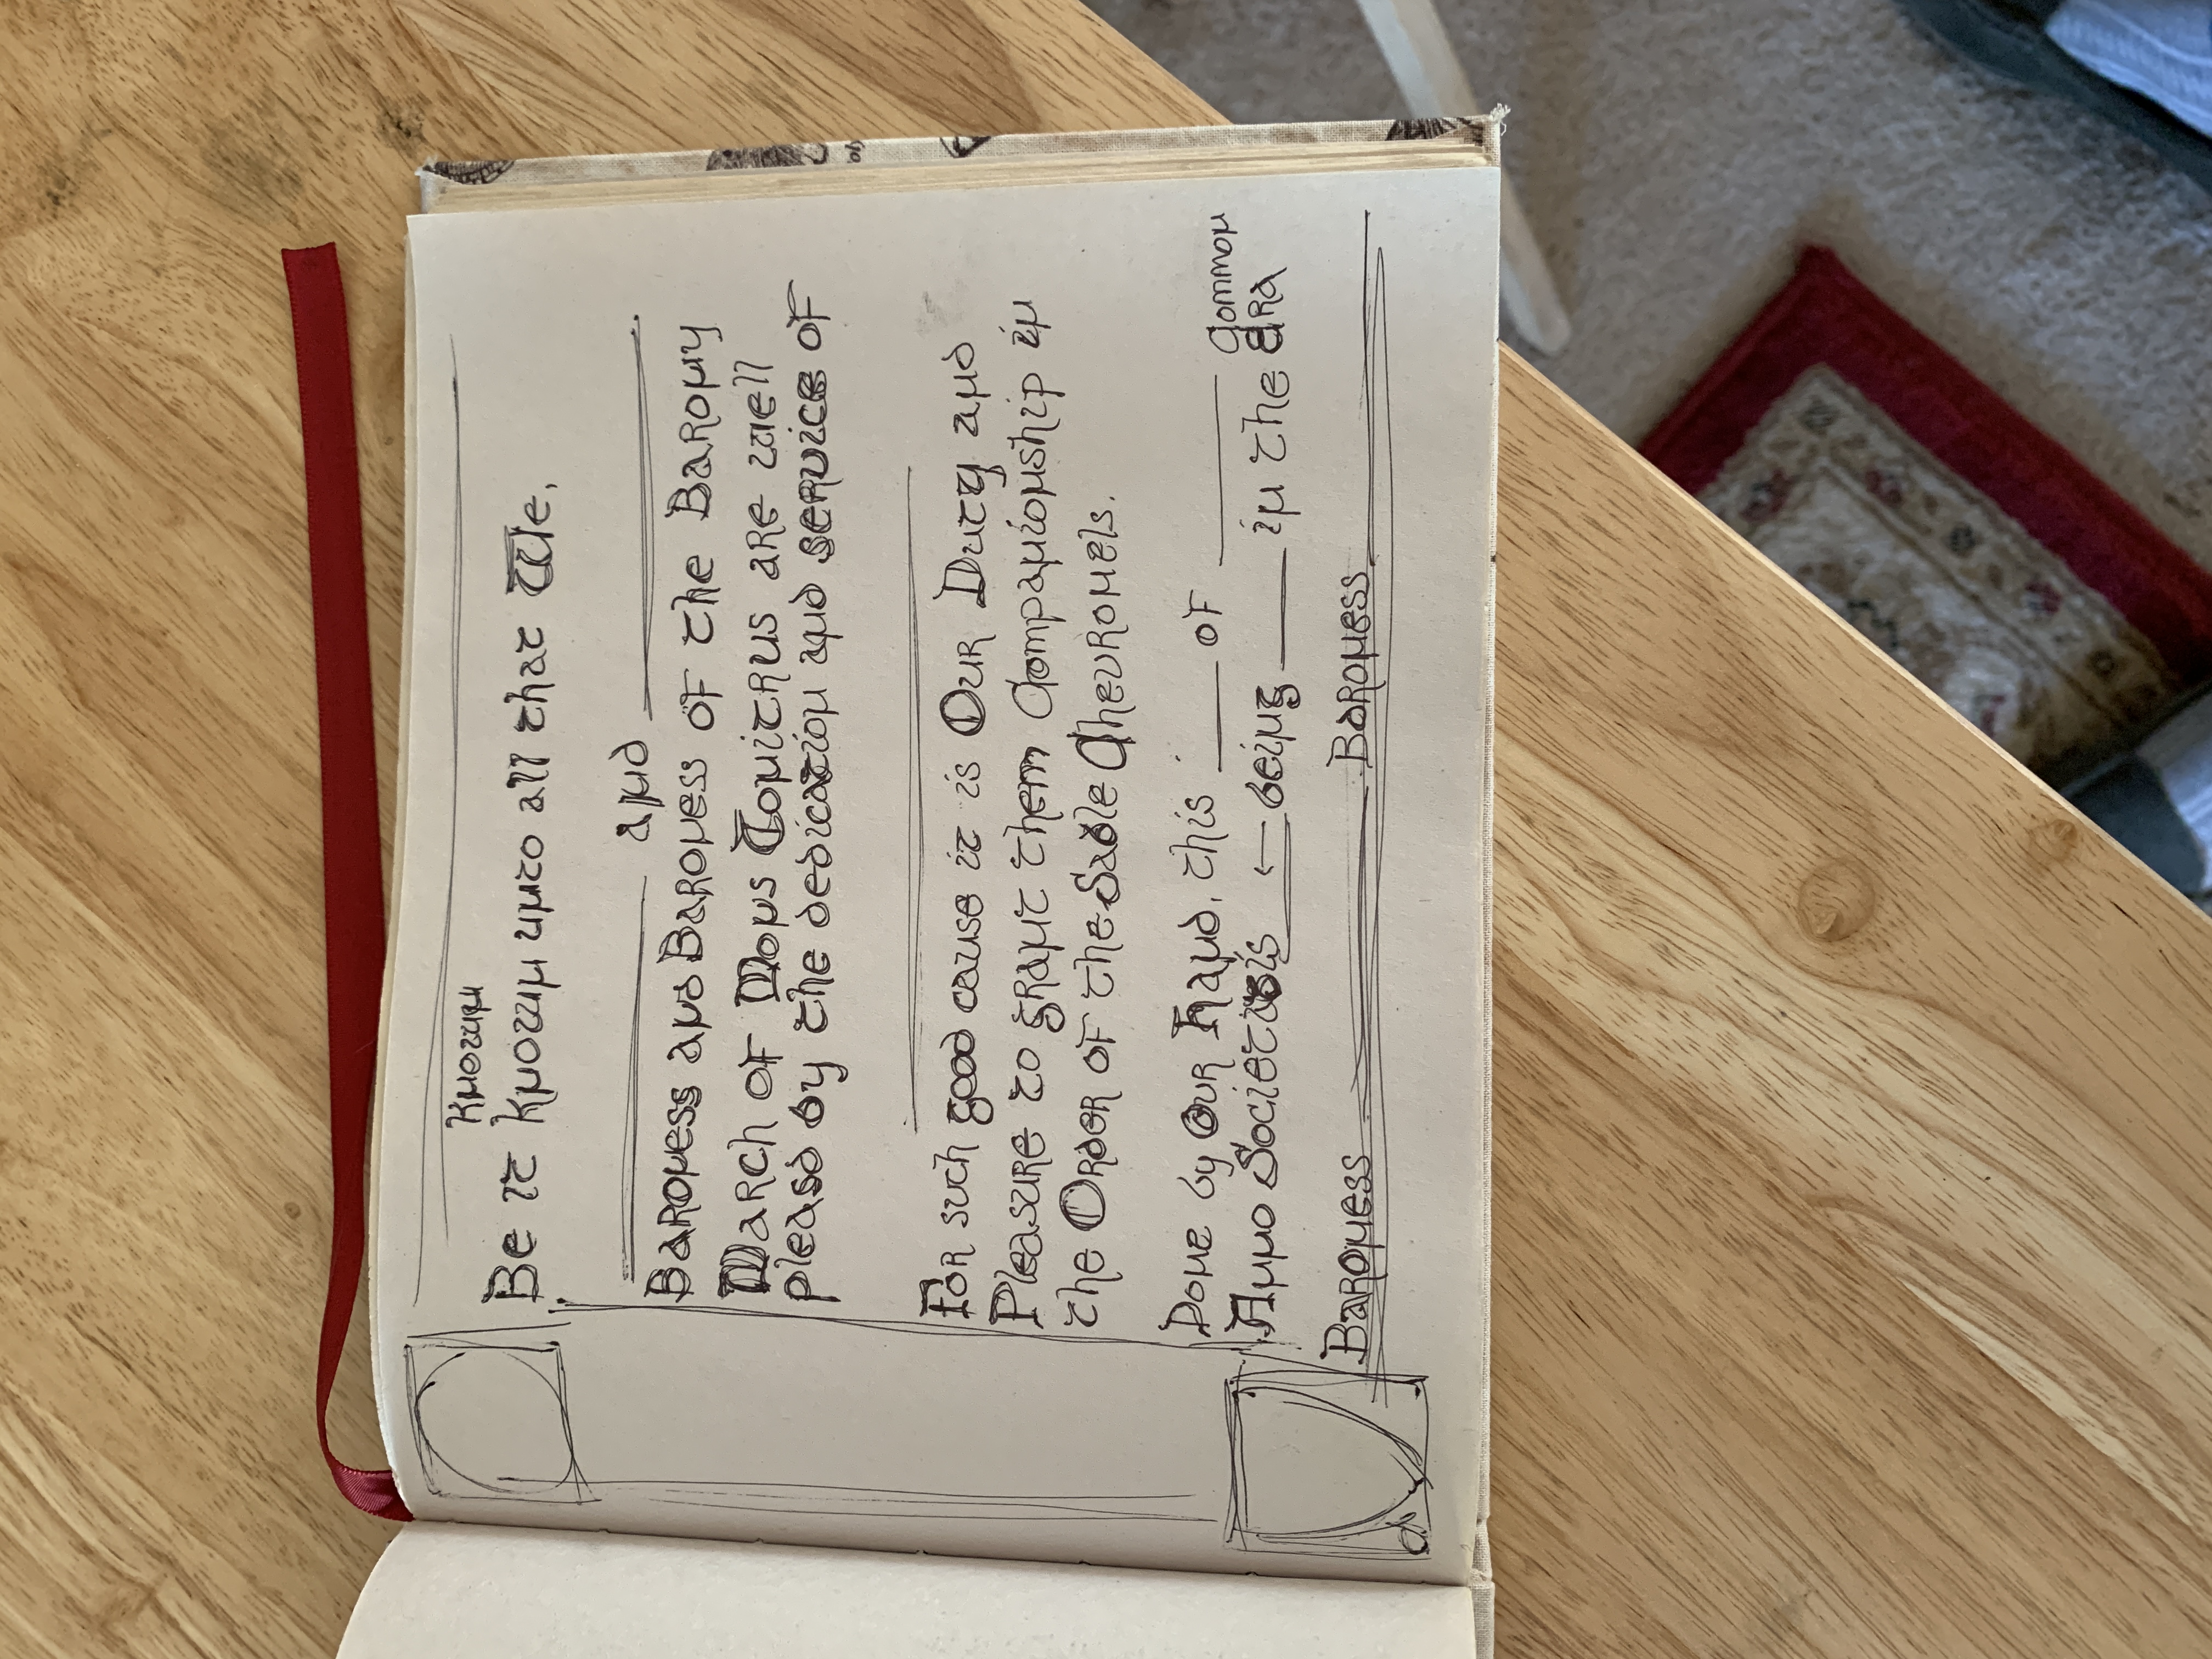 Known
Be it known unto all that We,
and
Baroness and Baroness of the Barony
March of Mons Tonitrus are well
pleasd by the dedication and service of
For such good cause it is Our Duty and
Pleasure to grant them Companionship in
the Order of the Sable Chevronels.
Done by Our Hand, this ____ of ____
Common
Anno Societatis ____ ← being ____ in the Era
Baroness ____ Baroness ____